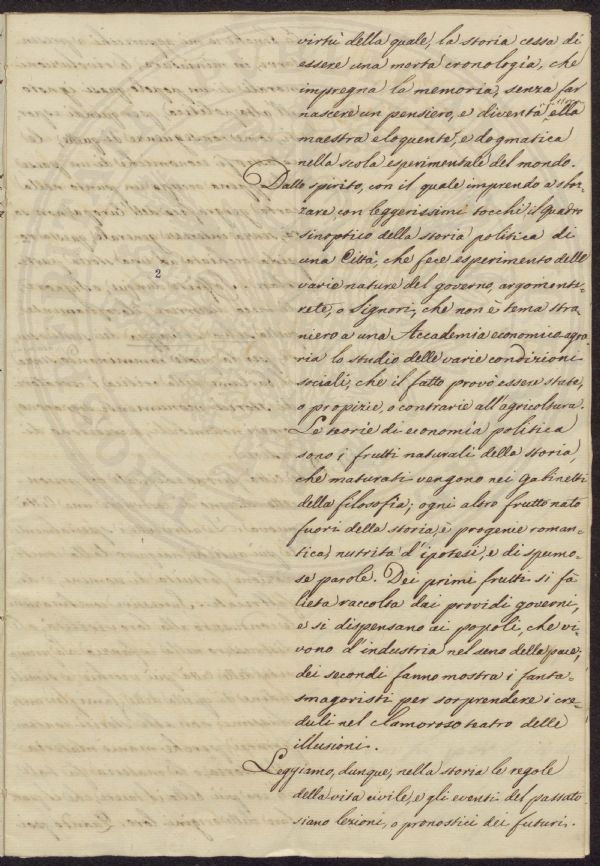 virtù della quale, la storia cessa di
essere una morta cronologia, che
impregna la memoria, senza far
nascere un pensiero, e diventa ella
maestra eloquente, e dogmatica
nella scola esperimentale del mondo.
Dallo spirito, con il quale imprendo a sboz-
zare con leggerissimi tocchi il quadro
sinoptico della storia politica di
una Città, che fece esperimento delle
varie nature del governo, argomente-
rete, o Signori, che non è tema stra-
niero a una Accademia economico-agra-
ria lo studio delle varie condizioni
sociali, che il fatto provò essere state,
o propizie, o contrarie all'agricoltura.
Le teorie di economia politica
sono i frutti naturali della storia,
che maturati vengono nei gabinetti
della filosofia; ogni altro frutto nato
fuori della storia, è progenie roman-
tica, nutrita d'ipotesi, e di spumo-
se parole. Dei primi frutti si fa
lieta raccolta dai providi governi,
e si dispensano ai popoli, che vi-
vono d'industria nel seno della pace;
dei secondi fanno mostra i fanta-
smagoristi per sorprendere i cre-
duli nel clamoroso teatro delle
illusioni.
2
Leggiamo, dunque, nella storia le regole
della vita civile, e gli eventi del passato
siano lezioni, o pronostici dei futuri.